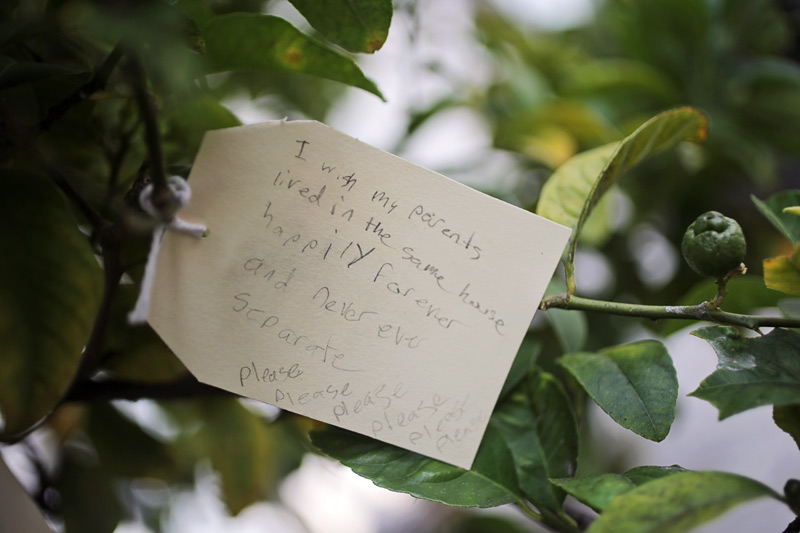 I wish my parents
lived in the same house
happily forever
and never ever
separate
please
please
please
please
please
please